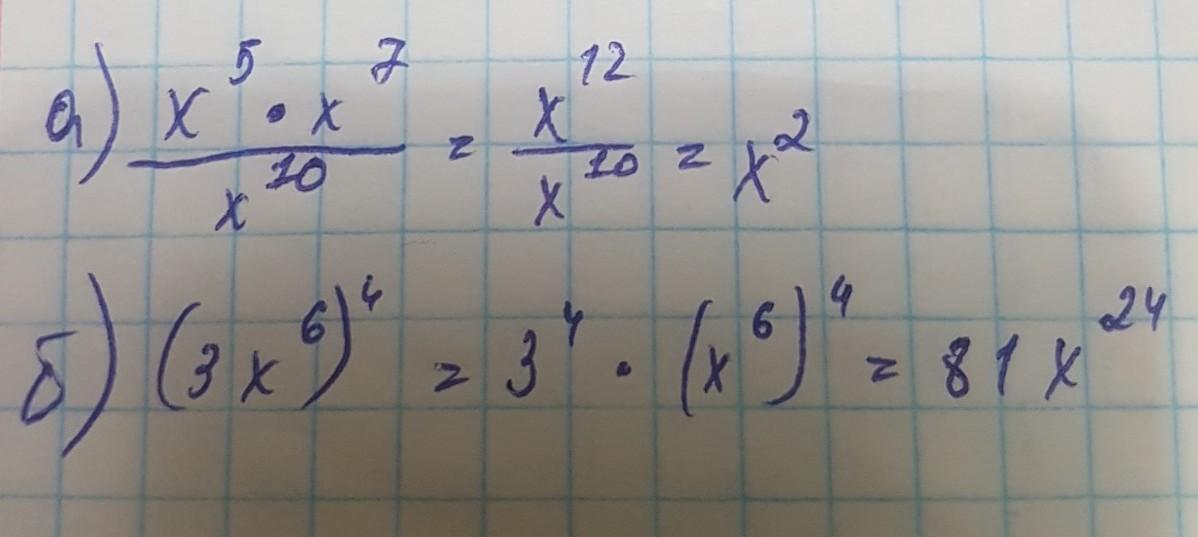 а) (x⁵ · x⁷)/x¹⁰ = x¹²/x¹⁰ = x²
б) (3x⁶)⁴ = 3⁴ · (x⁶)⁴ = 81x²⁴